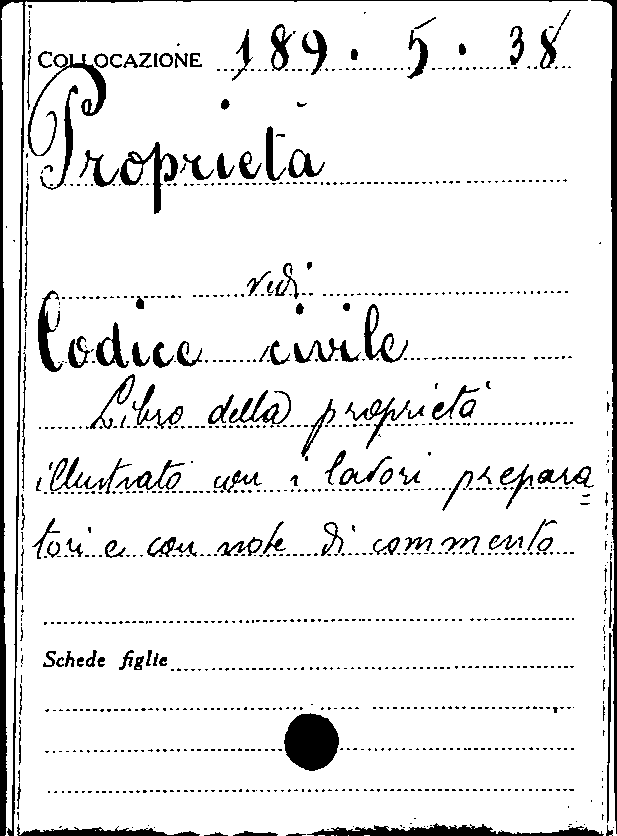 COLLOCAZIONE 189.5.38
Proprietà
vedi
Codice civile
Libro della proprietà
illustrato con i lavori prepara=
tori e con note di commento
Schede figlie